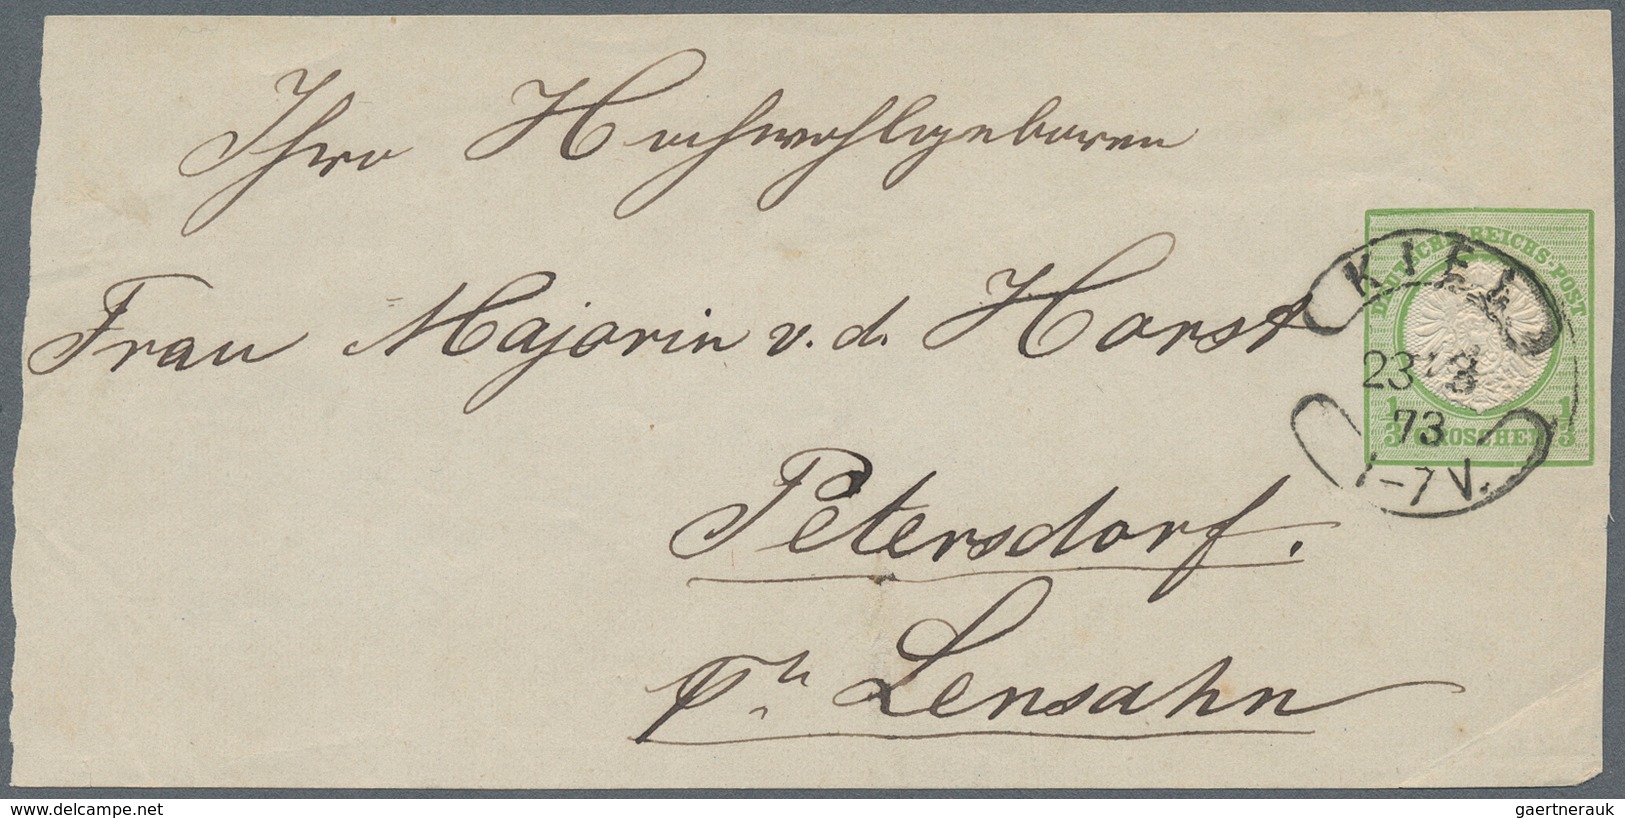 Ihro Hochwohlgeboren
Frau Majorin v. d. Horst
Petersdorf.
Lensahn
DEUTSCHE REICHS-POST
1/3 GROSCHEN 1/3
KIEL
23
73
-7 V.
www.delcampe.net
gaertnerauk